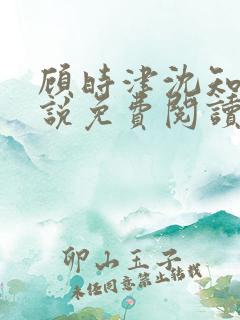 顾时津沈知
說免費閱讀
卯山玉子
未经同意禁止转载